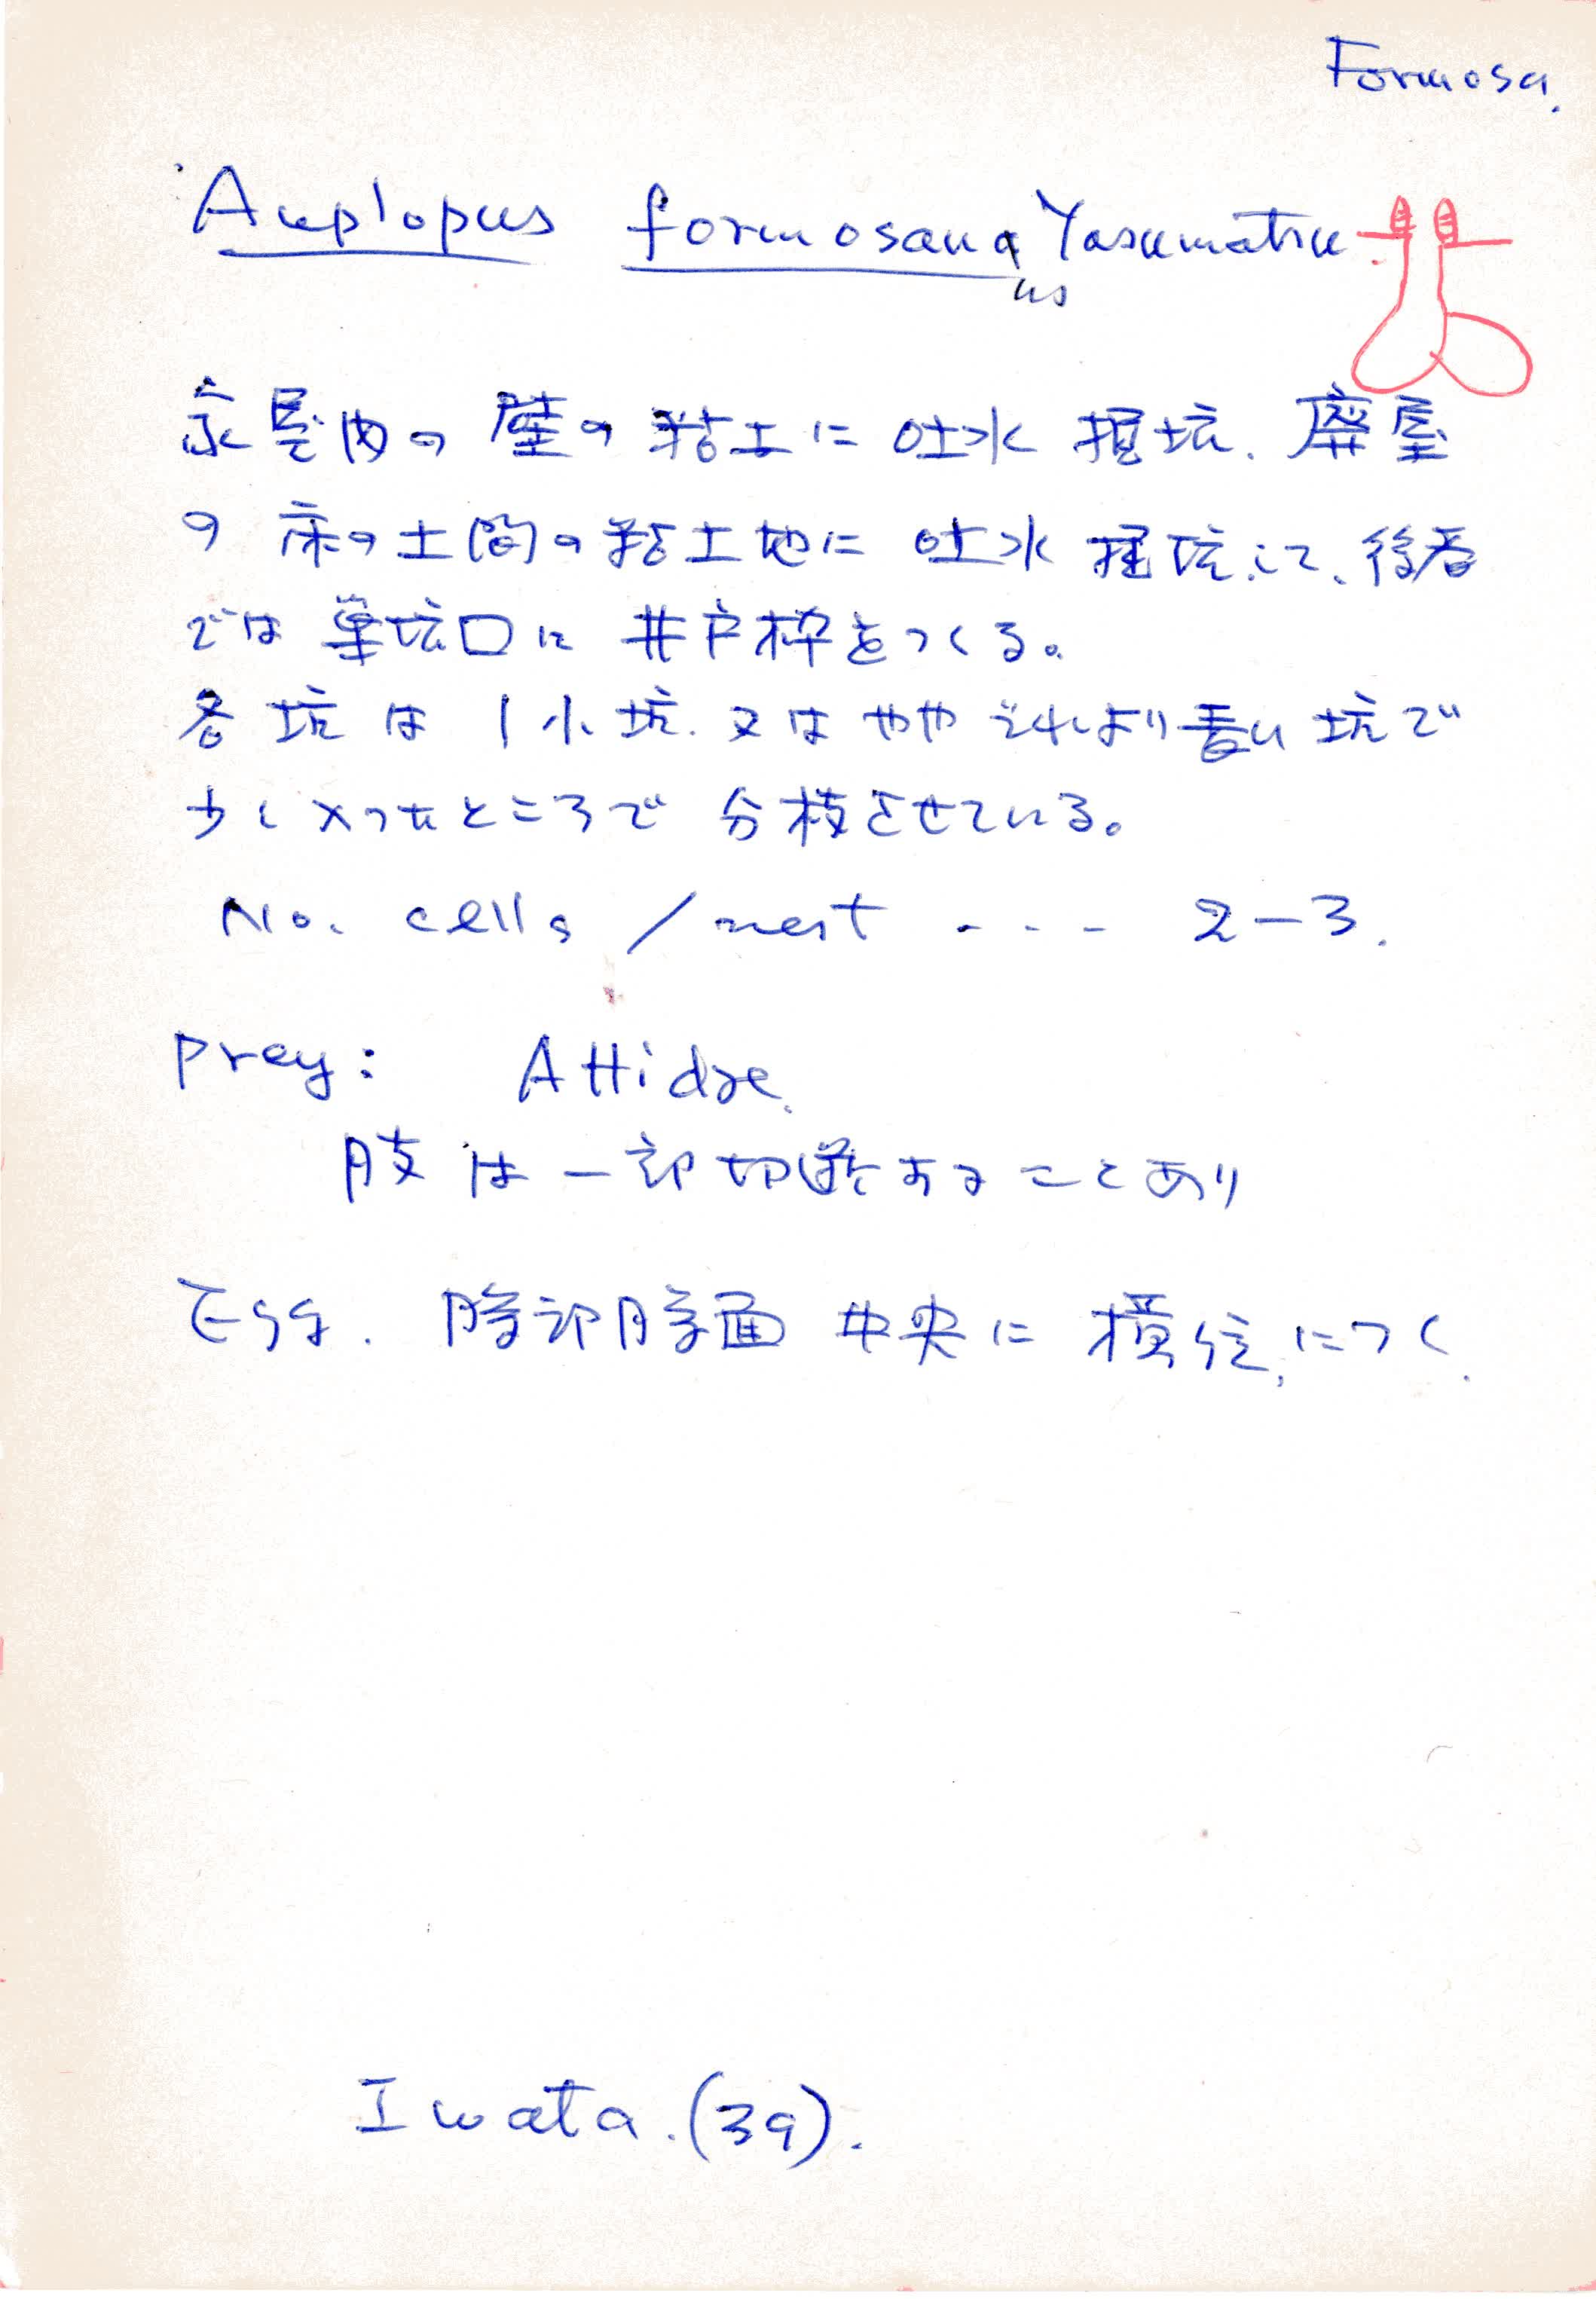 Formosa.
Auplopus formosana Yasumatsu
us
家屋内の壁の粘土に吐水掘坑、廃屋
の床の土間の粘土地に吐水掘坑して、後者
では巣坑口に井戸枠をつくる。
各坑は1小坑、又はややそれより長い坑で
少し入ったところで分枝させている。
No. cells / nest --- 2-3.
Prey: Attidae.
肢は一部切断することあり
Egg. 腹部腹面中央に横位につく.
Iwata.(39).